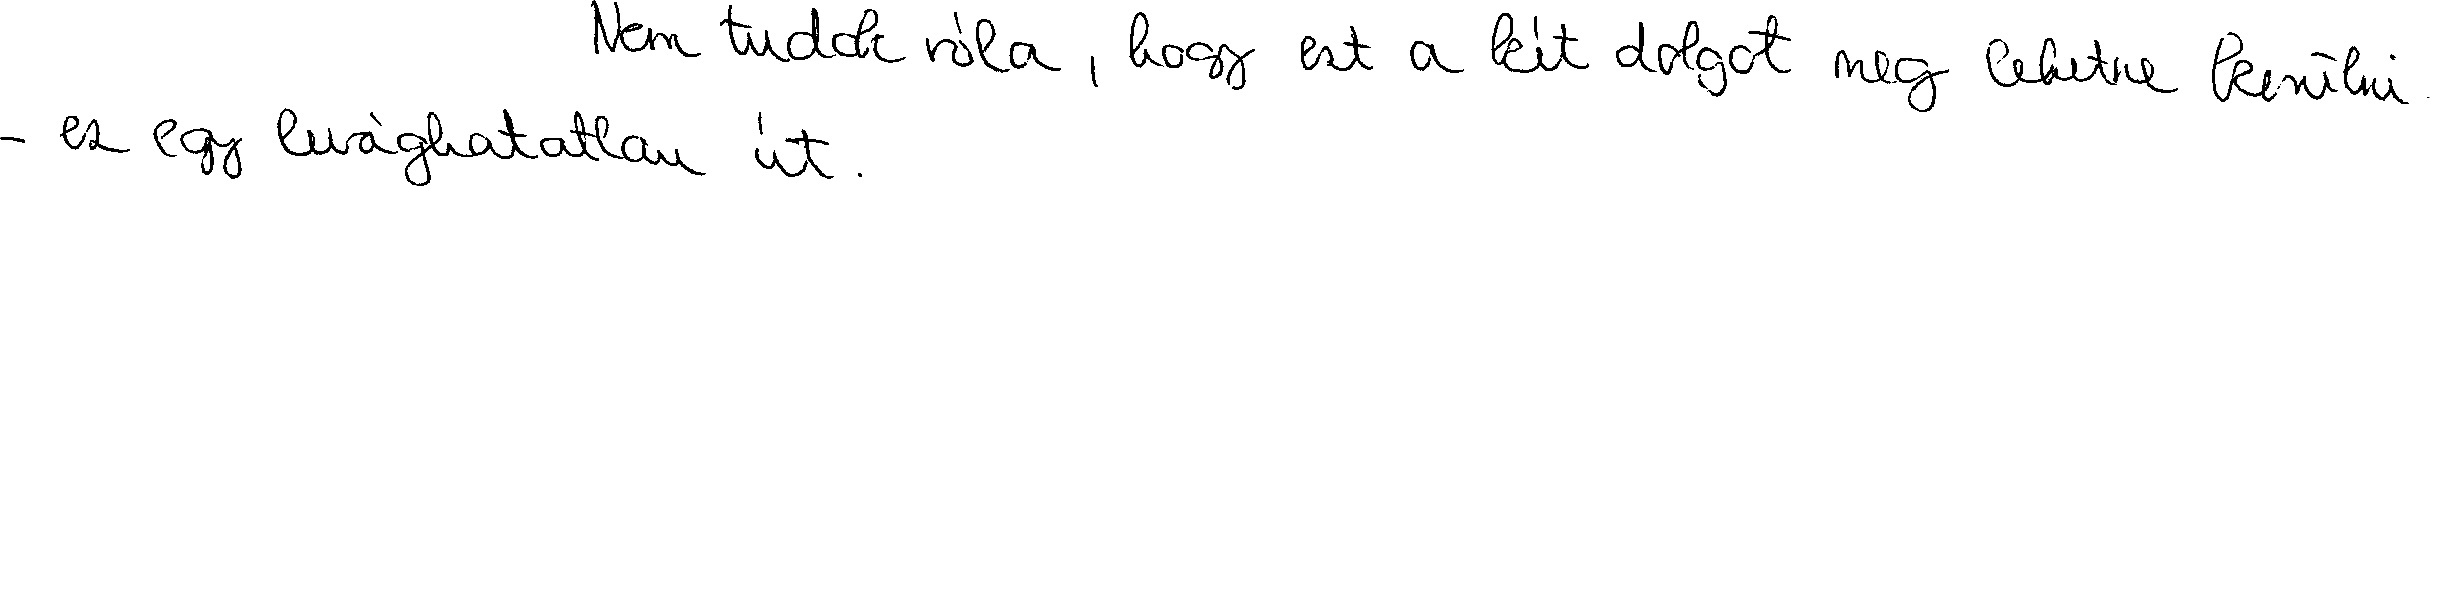 Nem tudok róla, hogy ezt a két dolgot meg lehetne kerülni
- ez egy levághatatlan út.